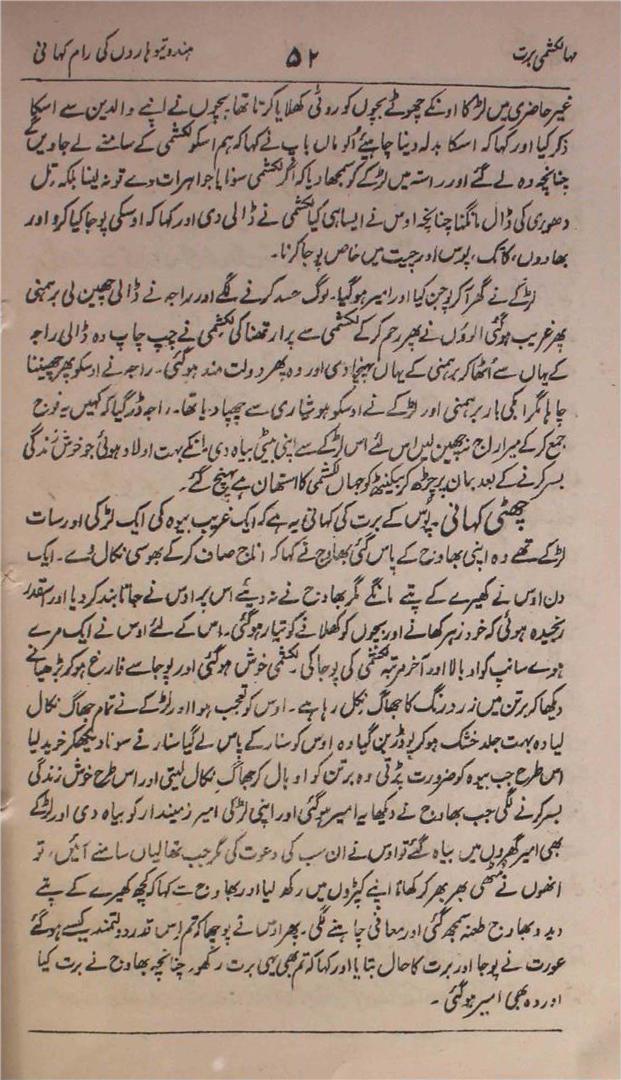 مہالکشمی برت ۵۲ ہندو تیوہاروں کی رام کہانی
غیر حاضری میں لڑکا اونکے چھوٹے بچوں کو روٹی کھلایا کرتا تھا بچوں نے اپنے والدین سے اسکا
ذکر کیا اور کہا کہ اسکا بدلہ دینا چاہئے اُلو ماں باپ نے کہا کہ ہم اسکو لکشمی کے سامنے لے جاویں گے
چنانچہ وہ لے گئے اور راستہ میں لڑکے کو سمجھا دیا کہ اگر لکشمی سونا یا جواہرات دے تو نہ لینا بلکہ تِل
دھوری کی ڈال مانگنا چنانچہ اوس نے ایسا ہی کیا لکشمی نے ڈالی دی اور کہا کہ اوسکی پوجا کیا کرو اور
بھادوں، کاتک، پوس اور چیت میں خاص پوجا کرنا۔
لڑکے نے گھر آکر پوجن کیا اور امیر ہوگیا۔ لوگ حسد کرنے لگے اور راجہ نے ڈالی چھین لی برہمنی
پھر غریب ہوگئی الوؤں نے پھر رحم کرکے لکشمی سے پرارتھنا کی لکشمی نے چپ چاپ وہ ڈالی راجہ
کے یہاں سے اُٹھا کر برہمنی کے یہاں پہنچا دی اور وہ پھر دولت مند ہوگئی۔ راجہ نے اوسکو پھر چھیننا
چاہا مگر ابکی بار برہمنی اور لڑکے نے اوسکو ہوشیاری سے چھپا دیا تھا۔ راجہ ڈر گیا کہ کہیں یہ فوج
جمع کرکے میرا راج نہ چھین لیں اس لئے اس لڑکے سے اپنی بیٹی بیاہ دی۔ انکے بہت اولاد ہوئی جو خوش زندگی
بسر کرنے کے بعد بمان پر چڑھ کر بیکنٹھ کو جہاں لکشمی کا استھان ہے پہنچ گئے۔
چھٹی کہانی۔ پوس کے برت کی کہانی یہ ہے کہ ایک غریب بیوہ کی ایک لڑکی اور سات
لڑکے تھے وہ اپنی بھاوج کے پاس گئی بھاوج نے کہا کہ اناج صاف کرکے بھوسی نکال دے۔ ایک
دن اوس نے کھیرے کے پتے مانگے مگر بھاوج نے نہ دیئے اس پر اوس نے جانا بند کر دیا اور اسقدر
رنجیدہ ہوئی کہ خود زہر کھانے اور بچوں کو کھلانے کو تیار ہوگئی۔ اس کے لئے اوس نے ایک مرے
ہوے سانپ کو اوبالا اور آخر مرتبہ لکشمی کی پوجا کی۔ لکشمی خوش ہوگئی اور پوجا سے فارغ ہوکر بڑھیا نے
دیکھا کہ برتن میں زرد رنگ کا جھاگ نکل رہا ہے۔ اوس کو تعجب ہوا اور لڑکے نے تمام جھاگ نکال
لیا وہ بہت جلد خشک ہوکر پوڈر بن گیا وہ اوس کو سنار کے پاس لے گیا سنار نے سونا دیکھکر خرید لیا
اس طرح جب بیوہ کو ضرورت پڑتی وہ برتن کو اوبال کر جھاگ نکال لیتی اور اس طرح خوش زندگی
بسر کرنے لگی جب بھاوج نے دیکھا یہ امیر ہوگئی اور اپنی لڑکی امیر زمیندار کو بیاہ دی اور لڑکے
بھی امیر گھروں میں بیاہ گئے تو اوس نے ان سب کی دعوت کی مگر جب تھالیاں سامنے آئیں، تو
انھوں نے مٹھی بھر بھر کر کھانا اپنے کپڑوں میں رکھ لیا اور بھاوج سے کہا کچھ کھیرے کے پتے
دیدو بھاوج طعنہ سمجھ گئی اور معافی چاہنے لگی۔ پھر اوس نے پوچھا کہ تم اس قدر دولتمند کیسے ہوگئے
عورت نے پوجا اور برت کا حال بتایا اور کہا کہ تم بھی یہی برت رکھو۔ چنانچہ بھاوج نے برت کیا
اور وہ بھی امیر ہوگئی۔